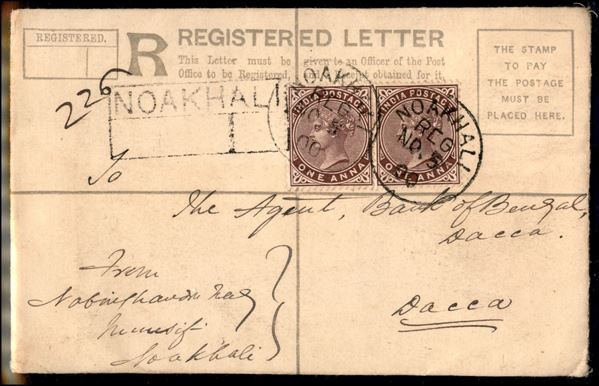 REGISTERED.
R
REGISTERED LETTER
This Letter must be given to an Officer of the Post
Office to be Registered, and a Receipt obtained for it.
THE STAMP
TO PAY
THE POSTAGE
MUST BE
PLACED HERE.
226
NOAKHALI
NOAKHALI
REG
INDIA POSTAGE
ONE ANNA
INDIA POSTAGE
ONE ANNA
NOAKHALI
REG
AP. 5
00
To
The Agent, Bank of Bengal,
Dacca.
Dacca
From
Munsif
Noakhali